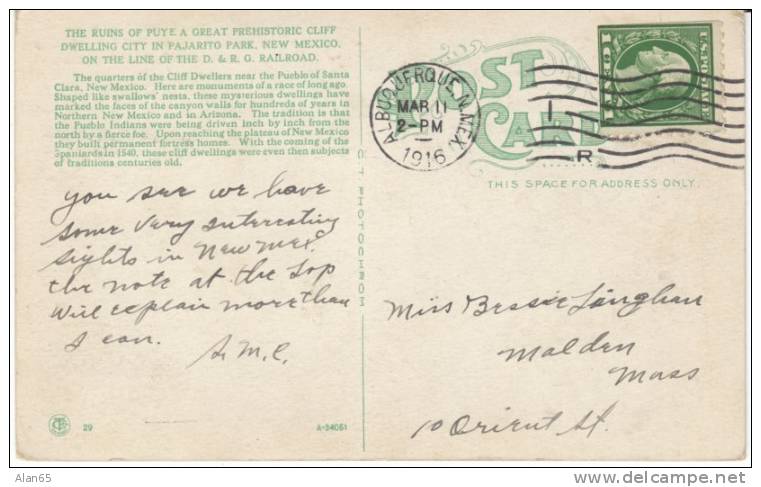 THE RUINS OF PUYE A GREAT PREHISTORIC CLIFF
DWELLING CITY IN PAJARITO PARK, NEW MEXICO,
ON THE LINE OF THE D. & R. G. RAILROAD.
The quarters of the Cliff Dwellers near the Pueblo of Santa
Clara, New Mexico. Here are monuments of a race of long ago.
Shaped like swallows' nests, these mysterious dwellings have
marked the faces of the canyon walls for hundreds of years in
Northern New Mexico and in Arizona. The tradition is that
the Pueblo Indians were being driven inch by inch from the
north by a fierce foe. Upon reaching the plateau of New Mexico
they built permanent fortress homes. With the coming of the
Spaniards in 1540, these cliff dwellings were even then subjects
of traditions centuries old.
you see we have
some very interesting
sights in New Mex.
the note at the top
will explain more than
I can.
29
A-54061
PHOTOCHROM
POST
CARD
ALBUQUERQUE, N. MEX.
MAR 11
2-PM
1916
1
R
THIS SPACE FOR ADDRESS ONLY.
Miss Bessie
Malden
Mass
10 Orient St.
Alan65
http://www.delcampe.net